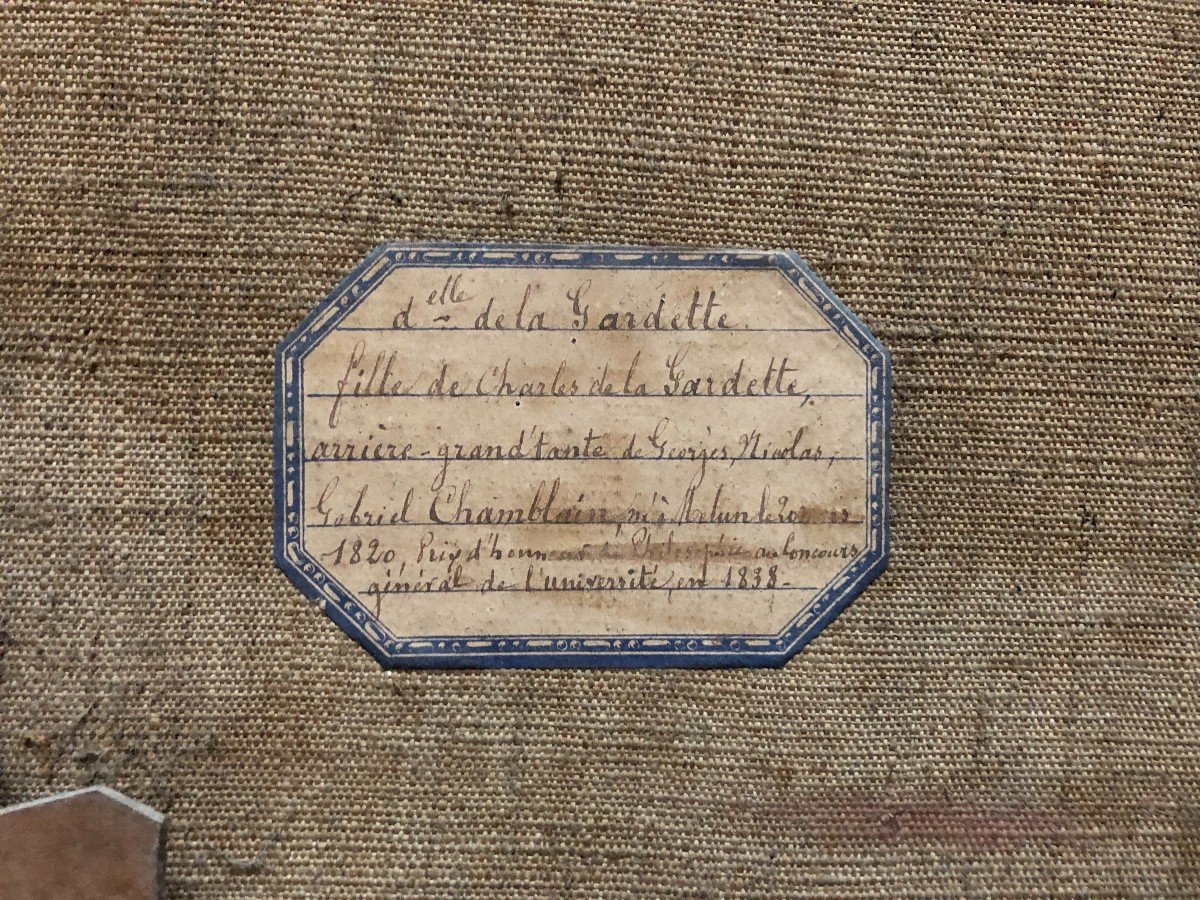 d elle de la Gardette.
fille de Charles de la Gardette,
arrière-grand'tante de Georges, Nicolas,
Gabriel Chamblain, né à Melun le 20
1820, Prix d'honneur de Philosophie au Concours
général de l'université, en 1838-